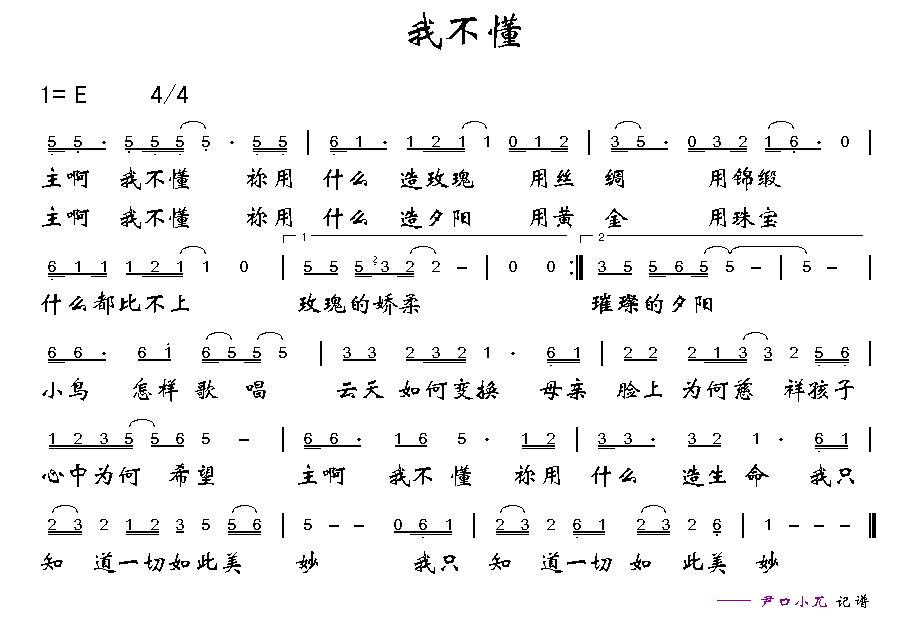 我不懂
1= E 4/4
5 5 · 5 5 5 5 · 5 5 | 6 1 · 1 2 1 1 0 1 2 | 3 5 · 0 3 2 1 6 · 0 |
主啊 我不懂 祢用 什么 造玫瑰 用丝 绸 用锦缎
主啊 我不懂 祢用 什么 造夕阳 用黄 金 用珠宝
1 2
6 1 1 1 2 1 1 0 | 5 5 5 2 3 2 2 – | 0 0 :| 3 5 5 6 5 5 – | 5 – |
什么都比不上 玫瑰的娇柔 璀璨的夕阳
6 6 · 6 1 6 5 5 5 | 3 3 2 3 2 1 · 6 1 | 2 2 2 1 3 3 2 5 6 |
小鸟 怎样 歌 唱 云天 如何变换 母亲 脸上 为何慈 祥孩子
1 2 3 5 5 6 5 – | 6 6 · 1 6 5 · 1 2 | 3 3 · 3 2 1 · 6 1 |
心中为何 希望 主啊 我不 懂 祢用 什么 造生 命 我只
2 3 2 1 2 3 5 5 6 | 5 – – 0 6 1 | 2 3 2 6 1 2 3 2 6 | 1 – – –
知 道一切如此美 妙 我只 知 道一切 如 此美 妙
—— 尹口小兀 记谱